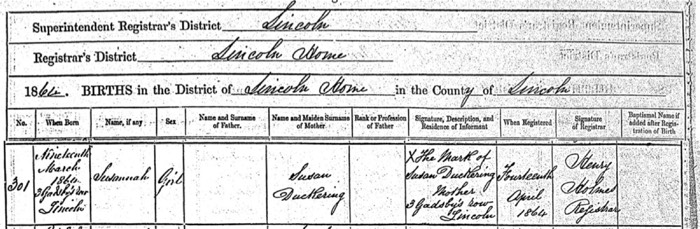 Superintendent Registrar's District Lincoln
Registrar's District Lincoln Home
1864. BIRTHS in the District of Lincoln Home in the County of Lincoln
No. When Born Name, if any Sex Name and Surname of Father. Name and Maiden Surname of Mother Rank or Profession of Father Signature, Description, and Residence of Informant When Registered Signature of Registrar Baptismal Name if added after Registration of Birth
301
Nineteenth
March
1864
3 Gadsby's row
Lincoln
Susannah
Girl
Susan
Duckering
X The Mark of
Susan Duckering
Mother
3 Gadsby's row
Lincoln
Fourteenth
April
1864
Henry
Holmes
Registrar